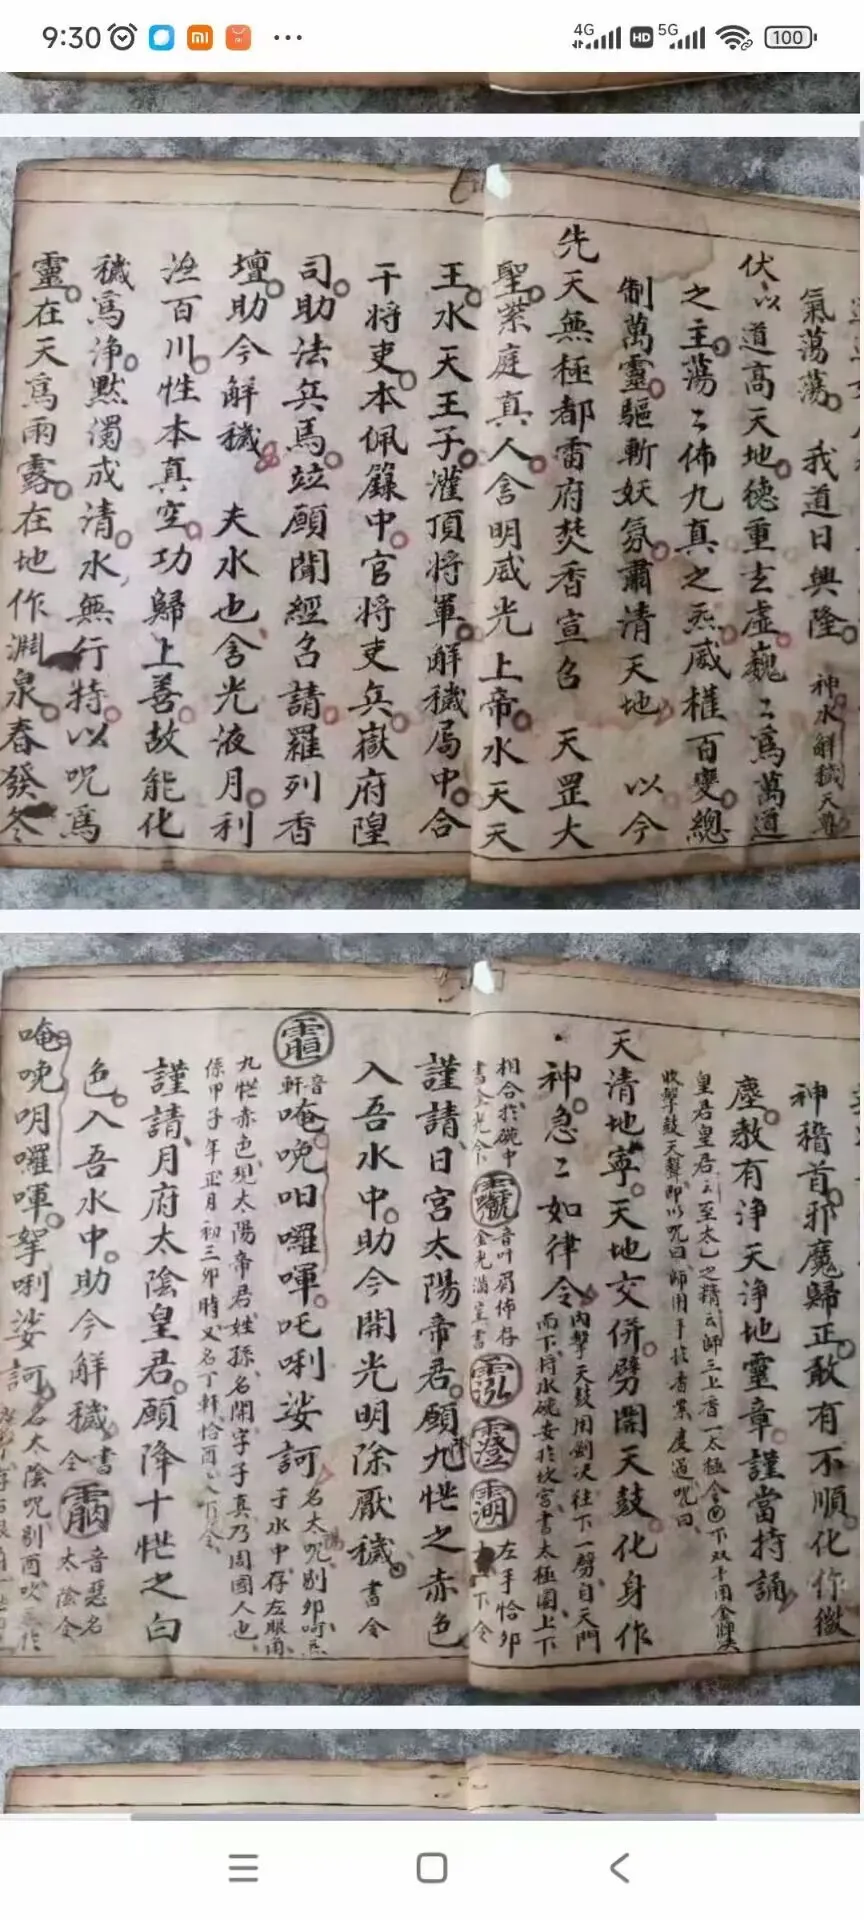 9:30
4G HD 5G 100
氣蕩蕩 我道日興隆 神水解穢天尊
伏以道高天地德重玄虛巍〻為萬道
之主蕩〻佈九真之炁威權百變總
制萬靈驅斬妖氛肅清天地 以今
先天無極都雷府焚香宣召 天罡大
聖紫庭真人含明威光上帝水天天
王水天王子灌頂將軍解穢局中合
干將吏本佩籙中官將吏兵嶽府隍
司助法兵馬竝願聞經召請羅列香
壇助今解穢 夫水也含光液月利
濟百川性本真空功歸上善故能化
穢為淨點濁成清水無行持以呪為
靈在天為雨露在地作淵泉春發冬
神稽首邪魔歸正敢有不順化作微
塵教有淨天淨地靈章謹當持誦
皇君皇君云至太乙之精云師三上香一太極令下双手用金牌決
收擊鼓天聲即以呪曰師用手於香案度過呪曰
天清地寧天地交併劈開天鼓化身作
神急〻如律令 內擊天鼓用劍決往下一劈自天門
而下將水碗安於坎宮書太極圖上下
相合於碗中書金光令 音叶眉佈存金光滿堂書 左手恰卯
下令
謹請日宮太陽帝君願九怹之赤色
入吾水中助今開光明除厭穢 書令
音軒 唵晚昍囉㗲吒唎娑訶 名太陽呪剔卯呵炁
于水中存左眼角
九怹赤色現太陽帝君姓孫名開字子真乃周國人也
係甲子年正月初三卯時又名丁軒恰酉文下令
謹請月府太陰皇君願降十怹之白
色入吾水中助今解穢 書令 音惡名太陰令
唵晚明囉㗲拏唎娑訶 名太陰呪剔酉吹